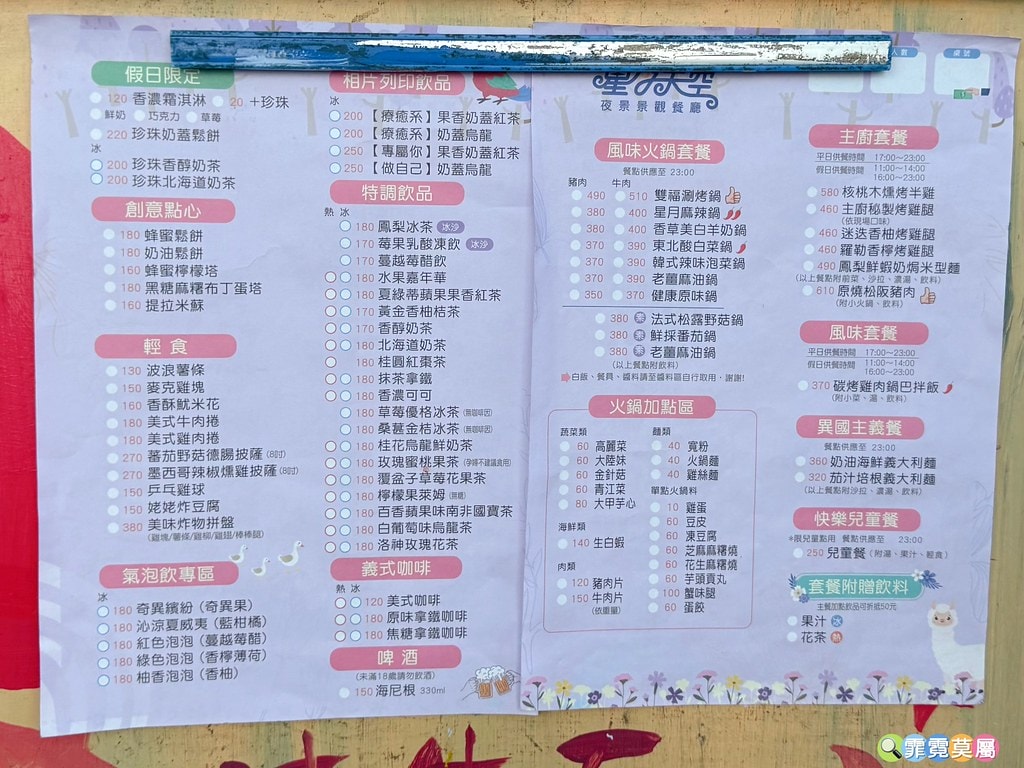 假日限定
120 香濃霜淇淋 20 +珍珠
鮮奶 巧克力 草莓
220 珍珠奶蓋鬆餅
冰
200 珍珠香醇奶茶
200 珍珠北海道奶茶
創意點心
180 蜂蜜鬆餅
180 奶油鬆餅
160 蜂蜜檸檬塔
180 黑糖麻糬布丁蛋塔
160 提拉米蘇
輕食
130 波浪薯條
150 麥克雞塊
160 香酥魷米花
180 美式牛肉捲
180 美式雞肉捲
270 番茄野菇德腸披薩(8吋)
270 墨西哥辣椒燻雞披薩(8吋)
150 乒乓雞球
150 姥姥炸豆腐
380 美味炸物拼盤
(雞塊/薯條/雞柳/雞翅/棒棒腿)
氣泡飲專區
冰
180 奇異繽紛（奇異果）
180 沁涼夏威夷（藍柑橘）
180 紅色泡泡（蔓越莓醋）
180 綠色泡泡（香檸薄荷）
180 柚香泡泡（香柚）
相片列印飲品
冰
200【療癒系】果香奶蓋紅茶
200【療癒系】奶蓋烏龍
250【專屬你】果香奶蓋紅茶
250【做自己】奶蓋烏龍
特調飲品
熱 冰
180 鳳梨冰茶 冰沙
170 莓果乳酸凍飲 冰沙
170 蔓越莓醋飲
180 水果嘉年華
180 夏綠蒂蘋果果香紅茶
170 黃金香柚桔茶
170 香醇奶茶
180 北海道奶茶
180 桂圓紅棗茶
180 抹茶拿鐵
180 香濃可可
180 草莓優格冰茶(無咖啡因)
180 桑葚金桔冰茶(無咖啡因)
180 桂花烏龍鮮奶茶
180 玫瑰蜜桃果茶(孕婦不建議食用)
180 覆盆子草莓花果茶
180 檸檬果萊姆(無糖)
180 百香蘋果味南非國寶茶
180 白葡萄味烏龍茶
180 洛神玫瑰花茶
義式咖啡
熱 冰
120 美式咖啡
180 原味拿鐵咖啡
180 焦糖拿鐵咖啡
啤酒
(未滿18歲請勿飲酒)
150 海尼根 330ml
夜景景觀餐廳
人數 桌號
風味火鍋套餐
餐點供應至 23:00
豬肉 牛肉
490 510 雙福涮烤鍋
380 400 星月麻辣鍋
380 400 香草美白羊奶鍋
370 390 東北酸白菜鍋
370 390 韓式辣味泡菜鍋
370 390 老薑麻油鍋
350 370 健康原味鍋
380 素 法式松露野菇鍋
380 素 鮮採番茄鍋
380 素 老薑麻油鍋
(以上餐點附飲料)
白飯、餐具、醬料請至醬料區自行取用，謝謝!
火鍋加點區
蔬菜類
60 高麗菜
60 大陸妹
60 金針菇
60 青江菜
80 大甲芋心
海鮮類
140 生白蝦
肉類
120 豬肉片
150 牛肉片
(依重量)
麵類
40 寬粉
40 火鍋麵
40 雞絲麵
單點火鍋料
10 雞蛋
60 豆皮
60 凍豆腐
60 芝麻麻糬燒
60 花生麻糬燒
60 芋頭貢丸
100 蟹味腿
60 蛋餃
主廚套餐
平日供餐時間 17:00~23:00
假日供餐時間 11:00~14:00
16:00~23:00
580 核桃木燻烤半雞
460 主廚秘製烤雞腿
(依現場口味)
460 迷迭香柚烤雞腿
460 羅勒香檸烤雞腿
490 鳳梨鮮蝦奶焗米型麵
(以上餐點附前菜、沙拉、濃湯、飲料)
510 原燒松阪豬肉
(附小火鍋、飲料)
風味套餐
平日供餐時間 17:00~23:00
假日供餐時間 11:00~14:00
16:00~23:00
370 碳烤雞肉鍋巴拌飯
(附小菜、湯、飲料)
異國主義餐
餐點供應至 23:00
360 奶油海鮮義大利麵
320 茄汁培根義大利麵
(以上餐點附沙拉、濃湯、飲料)
快樂兒童餐
*限兒童點用 餐點供應至 23:00
250 兒童餐（附湯、果汁、輕食）
套餐附贈飲料
主餐加點飲品可折抵50元
果汁 冰
花茶 熱
霏霓莫屬